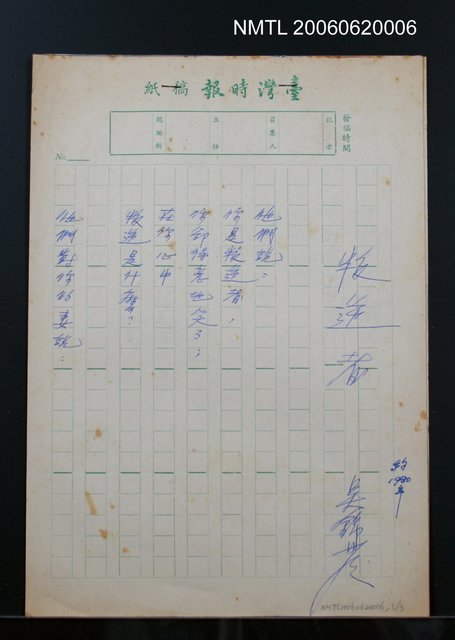 NMTL 20060620006
臺灣時報稿紙
發稿時間
記者
召集人
主任
總編輯
No.
叛逆者
約1980年
吳錦發
他們說：
你是叛逆者，
你卻特意地笑了；
在你心中
叛逆是什麼？
他們對你的妻說：
NMTL20060620006, 1/3